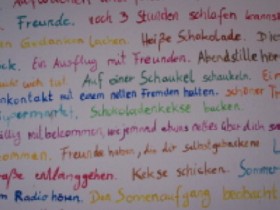 Freunde. noch 3 Stunden schlafen kannst
Gedanken lachen. Heiße Schokolade. Die
Ein Ausflug mit Freunden. Abendstille
tut. Auf einer Schaukel schaukeln.
kontakt mit einem netten Fremden halten. schöner
Supermarkt. Schokoladenkekse backen.
mitbekommen, wie jemand etwas nettes über dich
Freunde haben, die dir selbstgebackene
entlanggehen. Kekse schicken. Sommer
Radio hören. Den Sonnenaufgang beobacht